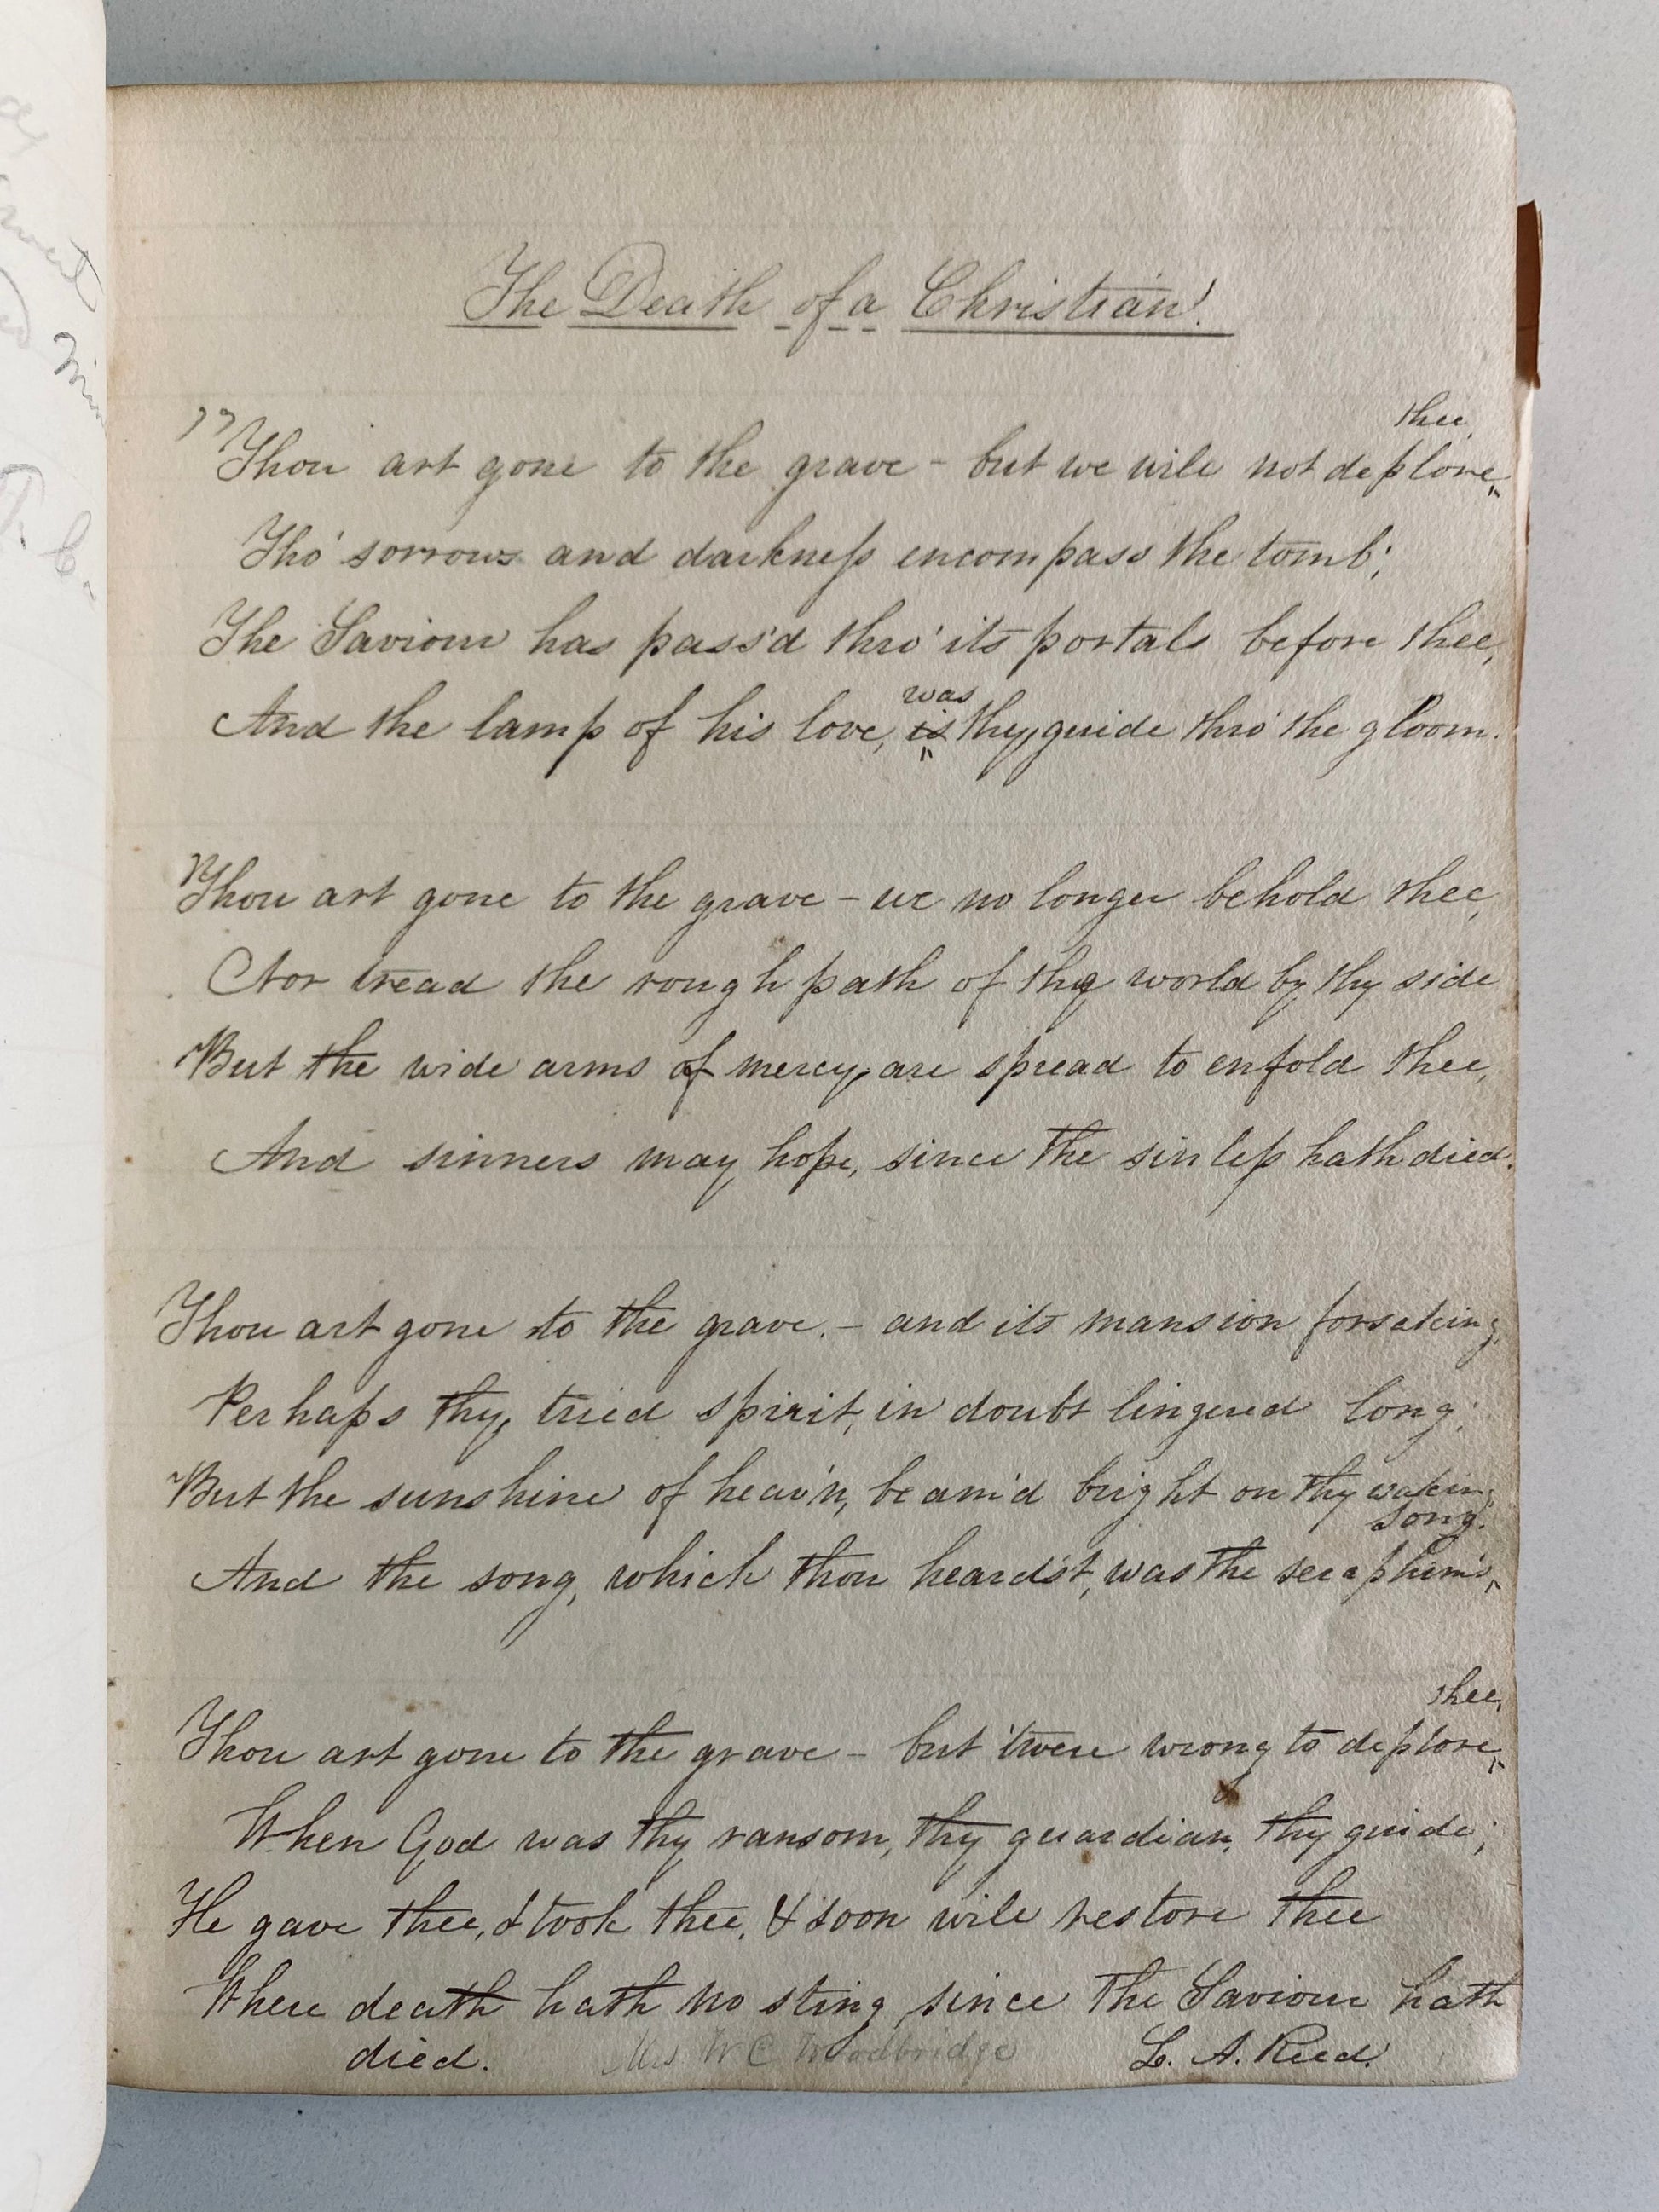 The Death of a Christian!
"Thou art gone to the grave - but we will not deplore thee,
Tho' sorrows and darkness encompass the tomb;
The Saviour has pass'd thro' its portals before thee,
And the lamp of his love, is was thy guide thro' the gloom.
"Thou art gone to the grave - we no longer behold thee,
Nor tread the rough path of the world by thy side
But the wide arms of mercy, are spread to enfold thee,
And sinners may hope, since the sinless hath died.
Thou art gone to the grave. - and its mansion forsaking,
Perhaps thy, tried spirit, in doubt lingered long;
But the sunshine of heav'n, beam'd bright on thy waking,
And the song, which thou heard'st, was the seraphim's song.
Thou art gone to the grave - but 'twere wrong to deplore thee,
When God was thy ransom, thy guardian, thy guide;
He gave thee, & took thee, & soon will restore thee
Where death hath no sting, since the Saviour hath
died. Mrs W C Woodbridge L. A. Reed.